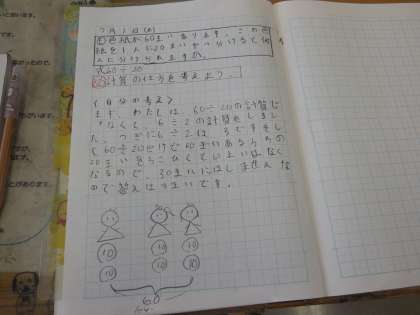 7月1日(火)
問色紙が60まいあります。この色
紙を1人に20まいずつ分けると何
人に分けられますか。
式60÷20
計算のしかたを考えよう。
〈自分の考え〉
まず、わたしは、60÷20の計算で
なく、6÷2の計算をしまし
た。6÷2は3です。そし
て60÷20だけで60まいある
20まい
なるので、30まいにはしませんな
ので答えは3まいです。
10 10 10
10 10 10
60
まい